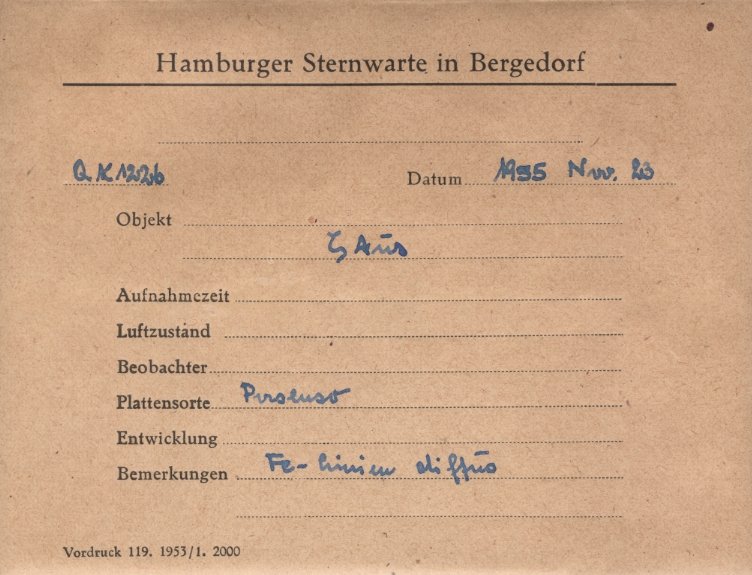 Hamburger Sternwarte in Bergedorf
QK1226 Datum 1955 Nov. 23
Objekt
ζ Aur
Aufnahmezeit
Luftzustand
Beobachter
Plattensorte Perseuso
Entwicklung
Bemerkungen Fe-Linien diffus
Vordruck 119. 1953/1. 2000